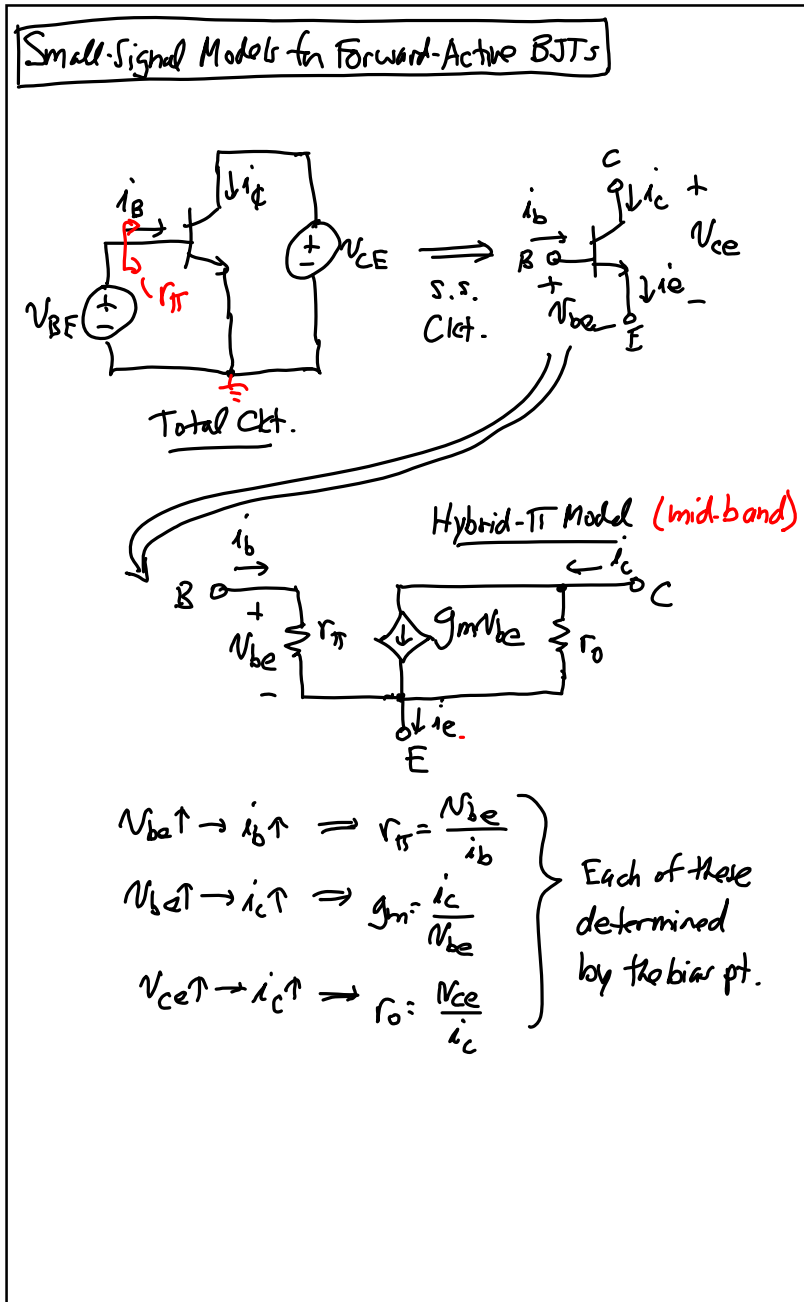 Small-Signal Models for Forward-Active BJTs
i_B
i_C
r_π
v_BE
+
−
+
−
v_CE
Total Ckt.
⟹
s.s.
Ckt.
C
i_c
+
v_ce
−
i_b
B
+
v_be
−
i_e
E
Hybrid-π Model (mid-band)
i_b
i_c
B
+
v_be
−
r_π
g_m v_be
r_o
C
i_e
E
v_be↑ → i_b↑ ⟹ r_π = v_be / i_b
v_be↑ → i_c↑ ⟹ g_m = i_c / v_be
v_ce↑ → i_c↑ ⟹ r_o = v_ce / i_c
Each of these
determined
by the bias pt.